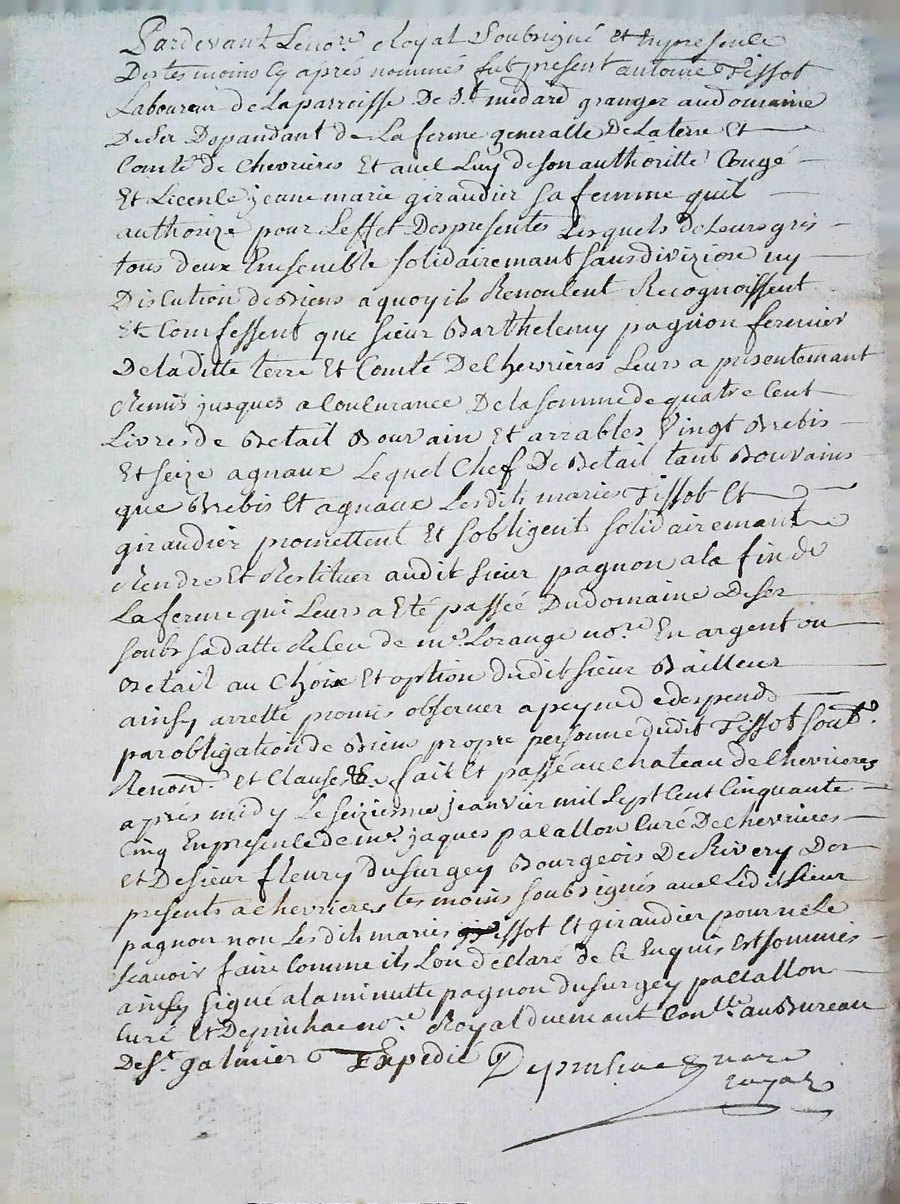 Pardevant Lenore. Royal Soubsigné et En presence
Des tesmoins cy apres nommés fut present antoine Tissot
Laboureur de La parroisse De St. medard granger audomaine
De Ser Dépandant de La ferme generalle De La terre Et
Comté de Chevrieres Et avec Luy de son authoritté Congé
Et Licence jeanne marie giraudier sa femme quil
authorize pour L'effet Des presentes Lesquels de Leurs grés
tous deux Ensemble solidairemant sans divizion ny
Discution de Biens a quoy ils Renoncent Recognoissent
Et Comfessent que sieur Barthelemy pagnon fermier
De la ditte terre Et Comté De Chevrieres Leurs a présentemant
Remis jusques a Concurance De la somme de quatre Cent
Livres de Betail Bouvain Et arrables Vingt Brebis
Et seize agnaux Lequel Chef De Betail tant Bouvains
que Brebis Et agnaux Lesdits mariés Tissot Et
giraudier promettent Et s'obligent solidairemant
Rendre Et Restituer audit sieur pagnon a la fin de
La ferme qui Leurs a Eté passée Du domaine De Ser
soubs sa datte Receu de me. Lorange nore. En argent ou
Betail au Choix Et option dudit sieur Bailleur
ainsy arretté promis observer a peyne de despends
par obligation de Biens propre personne dudit Tissot soubs.
Renon. et Clauses & fait Et passé au Chateau de Chevrieres
après midy Le seizieme jeanvier mil sept Cent Cinquante
Cinq En presence de me. jaques pacallon Curé De chevrieres
et De sieur fleury dusurgey Bourgeois De Rivery Dor
presents a chevrieres tesmoins soubsignés avec Ledit sieur
pagnon non Lesdits mariés Tissot Et giraudier pour ne Le
scavoir faire Comme ils L'on déclaré de Ce Enquis Et sommés
ainsy signé a la minutte pagnon dusurgey pacallon
Curé Et Depinhac nore. Royal duemant Conlle. au Bureau
De St. galmier Expedié Depinhac nore
royal